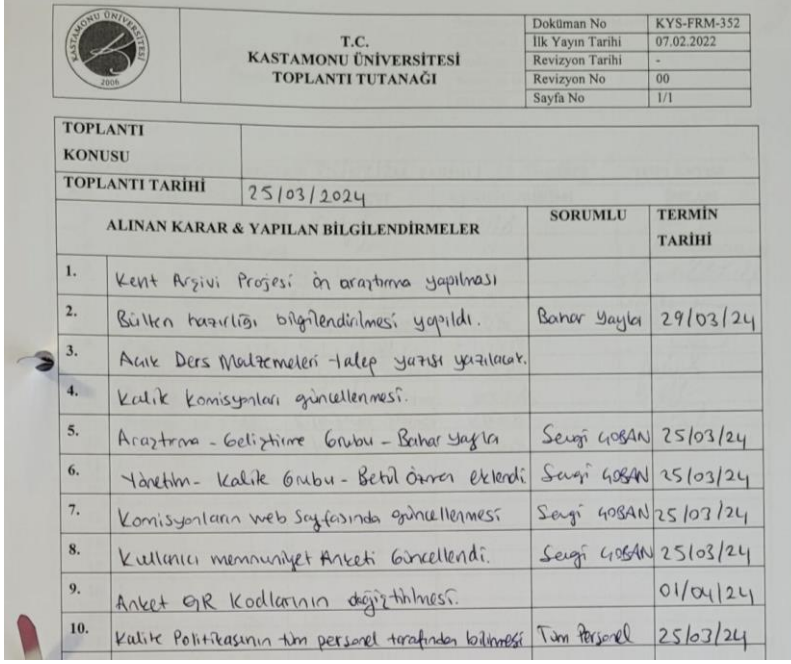 KASTAMONU ÜNİVERSİTESİ
2006
T.C.
KASTAMONU ÜNİVERSİTESİ
TOPLANTI TUTANAĞI
Doküman No KYS-FRM-352
İlk Yayın Tarihi 07.02.2022
Revizyon Tarihi -
Revizyon No 00
Sayfa No 1/1
TOPLANTI
KONUSU
TOPLANTI TARİHİ 25/03/2024
ALINAN KARAR & YAPILAN BİLGİLENDİRMELER SORUMLU TERMİN
TARİHİ
1. Kent Arşivi Projesi ön araştırma yapılması
2. Bülten hazırlığı bilgilendirilmesi yapıldı. Bahar Yayla 29/03/24
3. Açık Ders Malzemeleri talep yazısı yazılacak.
4. Kalik Komisyonları güncellenmesi.
5. Araştırma - Geliştirme Grubu - Bahar Yayla Sevgi 25/03/24
6. Yönetim - Kalite Grubu - Betül eklendi Sevgi 25/03/24
7. Komisyonların web sayfasında güncellenmesi Sevgi 25/03/24
8. Kullanıcı memnuniyet Anketi Güncellendi. Sevgi 25/03/24
9. Anket QR Kodlarının değiştirilmesi. 01/04/24
10. Kalite Politikasının tüm personel tarafından bilinmesi Tüm Personel 25/03/24